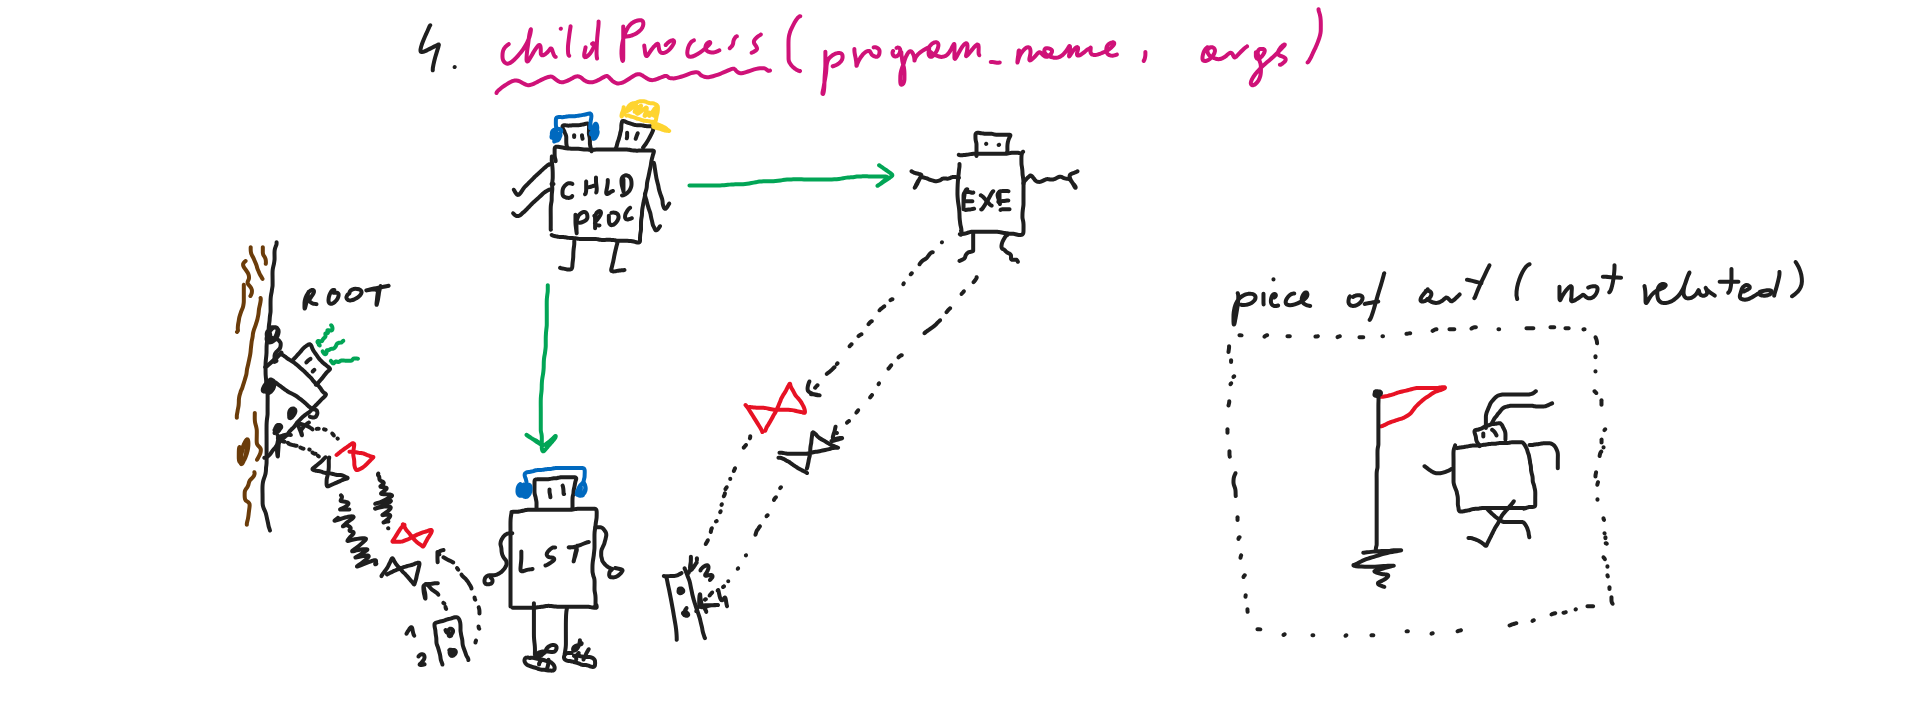 4. childProcess(program_name, args)
CHLD
PROC
EXE
ROOT
piece of art (not related)
LST
1
2
3
4